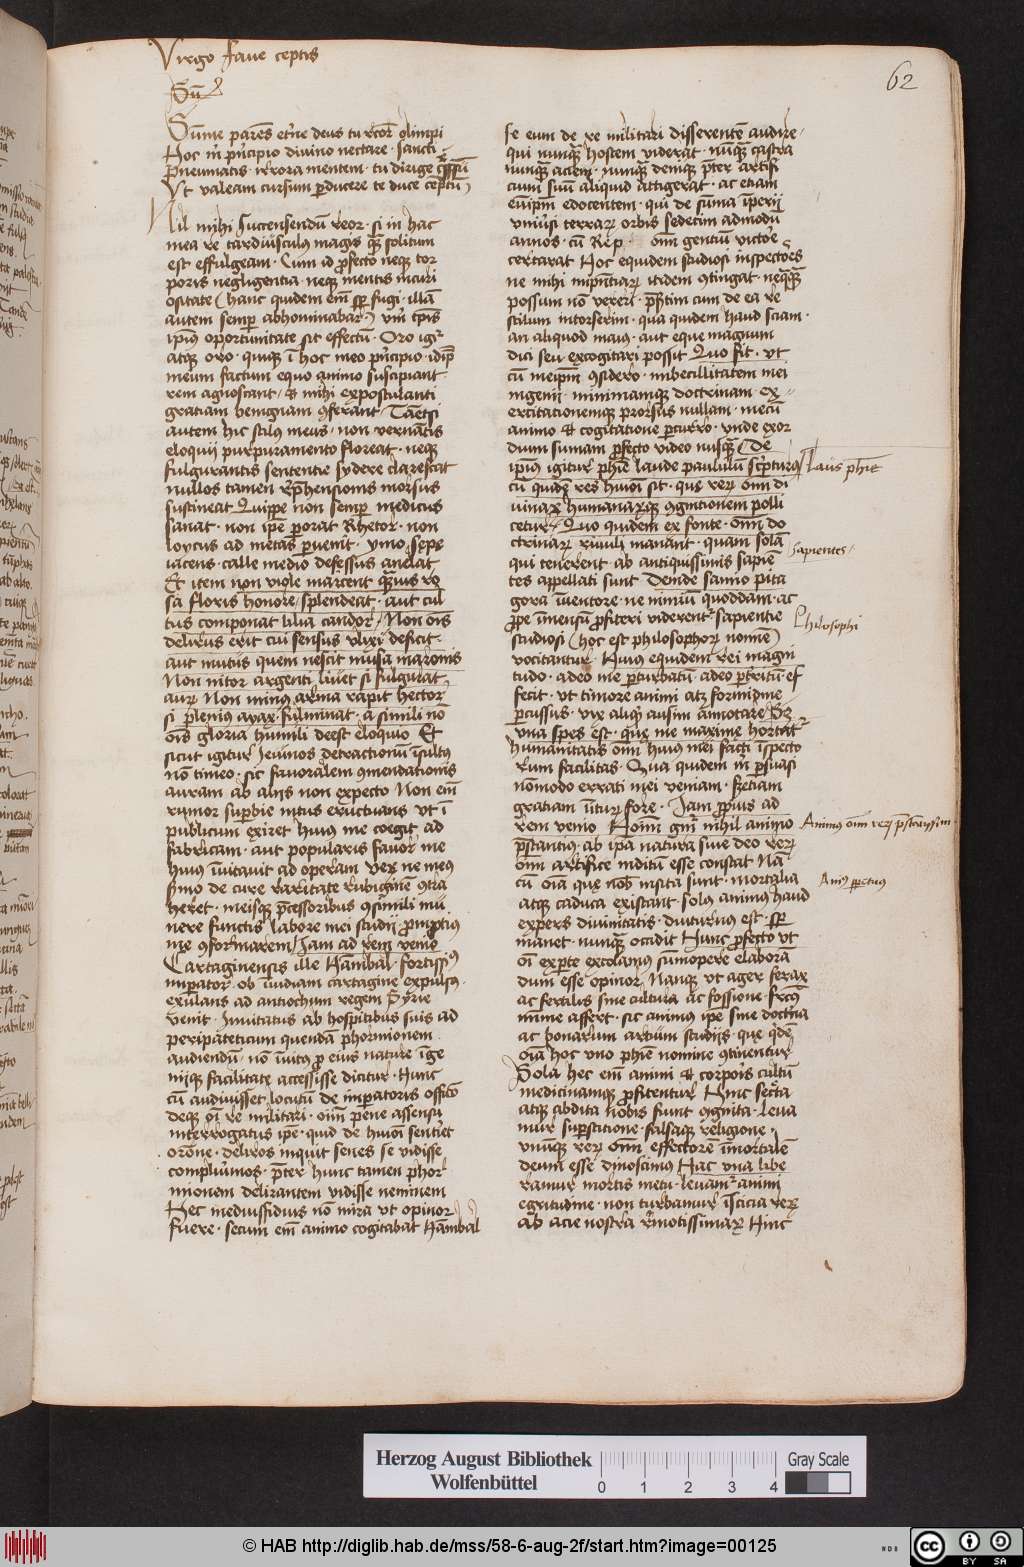 Virgo faue ceptis
62
Sūme parēs etne deus tu rector olimpi
Hoc in principio diuino nectare sancti
Pneumatis irrora mentem tu dirige gressum
Vt valeam cursum perducere te duce ceptum
Nil mihi succensendū reor si in hac
mea re tardiusculus magis quā solitum
est effulgeam Cum id profecto neque cor
poris negligentia neque mentis incuri
ositate (hanc quidem em̄ semper fugi illā
autem semper abhominabar)
ipius oportunitate sit effectū Oro igr
atque oro quique ī hoc meo principio
meum factum equo animo suscipiant
rem agnoscant et mihi expostulanti
gratiam benignam conferant Tametsi
autem hic stilus meus non vernantis
eloquii purpuramento floreat neque
fulgurantis sententie sydere clarescat
nullos tamen reprehensionis morsus
sustineat Quippe non semper medicus
sanat non ipse perorat Rhetor non
ad metas peruenit ymo sepe
iacens calle medio defessus anelat
Et item non viole marcent quāuis ro
sa floris honore splendeat aut cul
tus componat lilia candor Non oīs
delirus erit cui sensus vlixi deficit
aut mutus quem nescit musa maronis
Non nitor argenti liuet si fulgurat
aurū Non minus arma rapit hector
si plenius ayax fulminat a simili nō
oīs gloria humili deest eloquio Et
sicut igitur ieiunos detractionū īsultus
nō timeo sic fauoralem commendationis
auram ab aliis non expecto Non em̄
rumor superbie intus eructuans vt ī
publicum exiret huius me coegit ad
fabricam aut popularis fauor me
huius inuitauit ad operam verū ne meus
sermo de cure raritate rubigine contra
heret meisque predecessoribus consimili mu
nere functis labore mei studii promptius
me conformarem Iam ad rem venio
Cartaginensis ille Hānibal fortissi9
imperator ob inuidiam cartagine expulsus
exulans ad antiochum regem Syrie
venit Inuitatus ab hospitibus suis ad
peripateticum quendā phormionem
audiendū non inuitus pro eius nature inge
niique facilitate accessisse dicitur Hunc
cū audiuisset locutū de imperatoris officio
deque oī re militari oīm pene assensu
interrogatus ipse quid de huiōi sentiret
orōne deliros inquit senes se vidisse
complurimos preter hunc tamen phor
mionem delirantem vidisse neminem
Nec mediussidius nō mira vt opinor
fuere secum em̄ animo cogitabat Hānibal
se eum de re militari disserentē audire
qui nunquā hostem viderat nunquā castra
nunquā aciem nunquā denique preter artifi
cium suū aliquid attigerat ac etiam
eūipm edocentem qui de sūma imperii
vniuersi terrarū orbis sedecim admodū
annos cū Rep omī gentiū victore
certarat Hoc equidem studiosi inspectores
ne mihi itidem contingat nequaquā
possum nō vereri presertim cum de ea re
stilum intorserim qua quidem haud sciam
an aliquod maius aut eque magnum
dici seu excogitari possit Quo fit vt
cū meipm considero imbecillitatem mei
ingenii minimamque doctrinam ex
ercitationemque prorsus nullam mecū
animo et cogitatione percurro vnde exor
dium sumam profecto video nusquā De
ipius igitur phie laude paululū scripturus
cū quidē res huiōi sit que rerū omī di
uinarū humanarūque cognitionem polli
cetur Quo quidem ex fonte omī do
ctrinarū riuuli manant quam solā
qui tenerent ab antiquissimis sapien
tes appellati sunt Deinde samio pita
gora inuentore ne nimiū quoddam ac
prope īmensū profiteri viderentur sapientie
studiosi (hoc est philosophorū nomē)
vocitantur Huius equidem rei magni
tudo adeo me perturbatū adeo perterritū ef
fecit vt timore animi atque formidine
percussus vix aliquid ausim annotare Sed
vna spes est que me maxime hortatur
humanitatis omī huius mei facti īspecto
rum facilitas Qua quidem mihi persuasi
nōmodo errati mei veniam sed etiam
gratiam initurū fore Iam propius ad
rem venio Homī genere nihil animo
prestantius ab ipsa natura siue deo rerū
omī artifice inditū esse constat Nā
cū oīa que nobis insita sunt mortalia
atque caduca existant solus animus haud
expers diuinitatis diuturnus est semper
manet nunquā occidit Hunc profecto vt
oī ex parte excolamus sūmopere elaborā
dum esse opinor Nanque vt ager ferax
ac fertilis sine cultura ac fossione fructus
minime affert sic animus ipse sine doctrina
ac bonarum artium studiis que quidem
oīa hoc vno phie nomine continentur
Sola hec em̄ animi et corporis cultū
medicinamque profitentur Hinc secreta
atque abdita nobis fiunt cognita leua
mur superstitione falsaque religione
vnūque rerū omī effectorē īmortalē
deum esse dinoscimus Hac vna libe
ramur mortis metu leuamur animi
egritudine non turbamur īscicia rerū
ab acie nostra remotissimarū Hinc
Laus phie
Sapientes
Philosophi
Animus omī rerū prestantissimus
Anim9 perpetuus
Herzog August Bibliothek
Wolfenbüttel
0 1 2 3 4
Gray Scale
© HAB http://diglib.hab.de/mss/58-6-aug-2f/start.htm?image=00125
WDB
cc BY SA